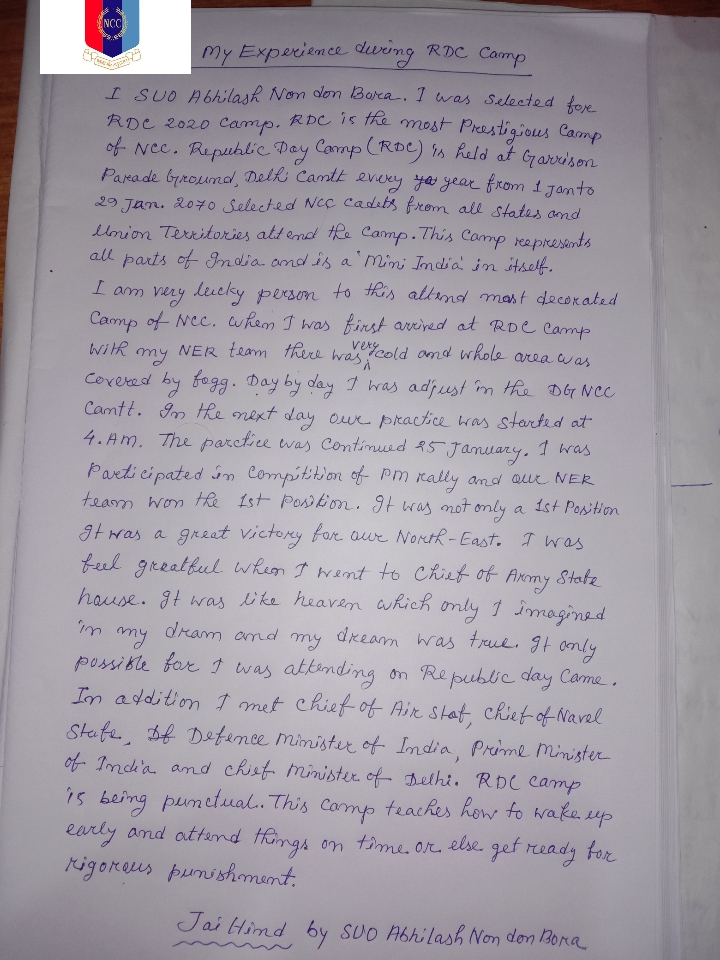 NCC
My Experience during RDC Camp
I SUO Abhilash Non don Bora. I was selected for
RDC 2020 Camp. RDC is the most Prestigious Camp
of NCC. Republic Day Camp (RDC) is held at Garrison
Parade Ground, Delhi Cantt every year from 1 Jan to
29 Jan. 2070 Selected NCC Cadets from all States and
Union Territories attend the Camp. This Camp represents
all parts of India and is a 'Mini India' in itself.
I am very lucky person to this attend most decorated
Camp of NCC. When I was first arrived at RDC Camp
With my NER team there was very cold and whole area was
Covered by fogg. Day by day I was adjust in the DG NCC
Cantt. In the next day our practice was started at
4. AM. The parctice was Continued 25 January. I was
Participated in Compitition of PM rally and our NER
team won the 1st Position. It was not only a 1st Position
It was a great victory for our North-East. I was
feel greatful when I went to Chief of Army State
house. It was like heaven which only I imagined
in my dram and my dream was true. It only
possible for I was attending on Republic day Came.
In addition I met Chief of Air Staf, Chief of Navel
State, Df Defence Minister of India, Prime Minister
of India and chief Minister of Delhi. RDC Camp
is being punctual. This Camp teaches how to wake up
early and attend things on time or else get ready for
rigorous punishment.
Jai Hind by SUO Abhilash Non don Bora